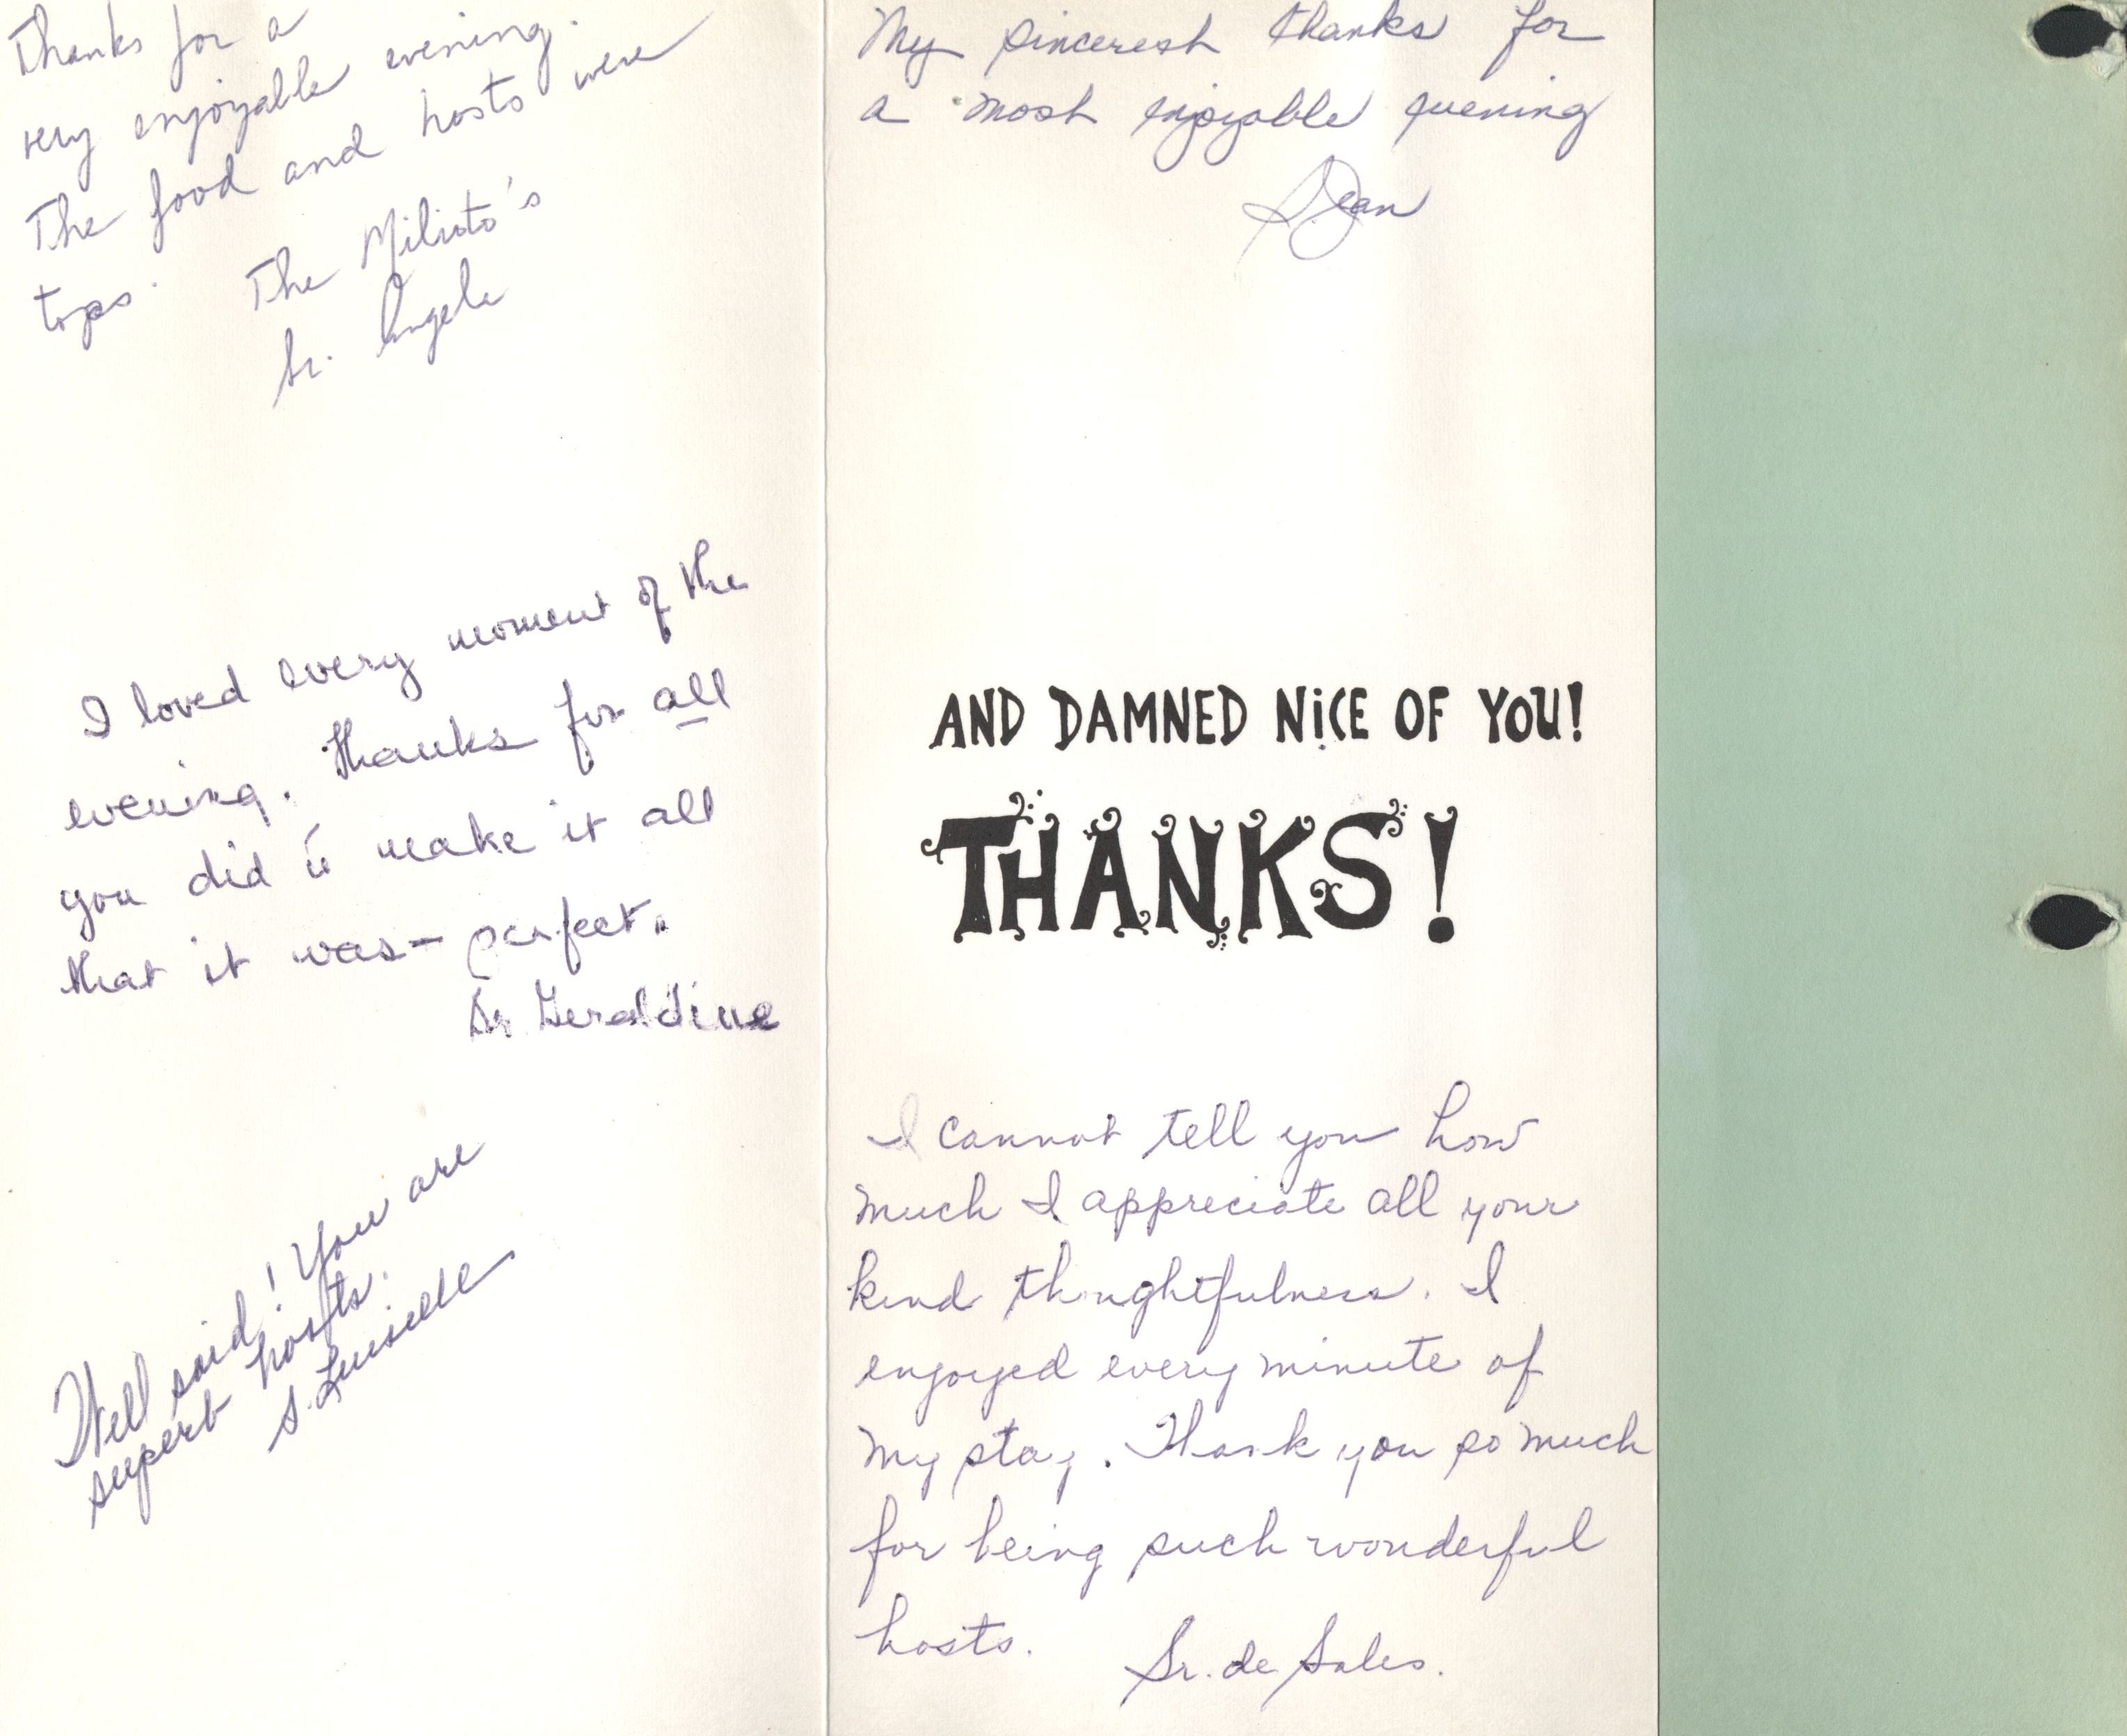 Thanks for a
very enjoyable evening.
The food and hosts were
tops.
The Milioto's
Sr. Angela
I loved every moment of the
evening. Thanks for all
you did to make it all
that it was - perfect.
Sr Geraldine
Well said! You are
superb hosts.
My sincerest thanks for
a most enjoyable evening
S. Jean
AND DAMNED NiCE OF YOU!
THANKS!
I cannot tell you how
much I appreciate all your
kind thoughtfulness. I
enjoyed every minute of
my stay. Thank you so much
for being such wonderful
hosts.
Sr. de Sales.